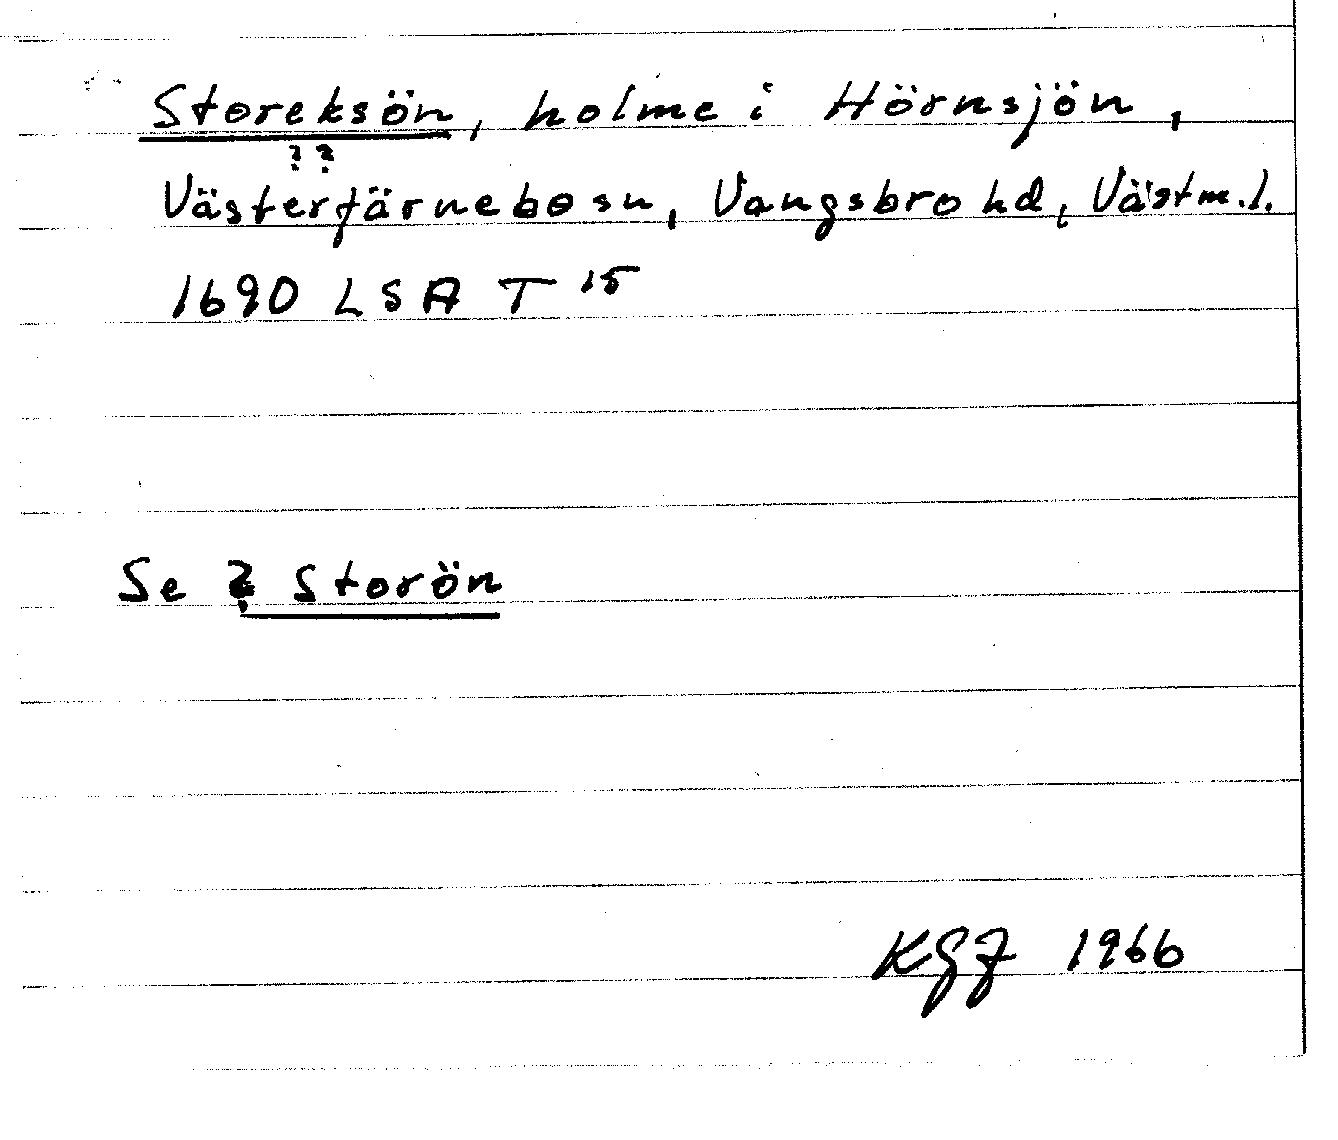 Storeksön, holme i Hörnsjön,
? ?
Västerfärnebo sn, Vangsbro hd, Västm. l.
1690 LSA T 15
Se ? Storön
KGF 1966